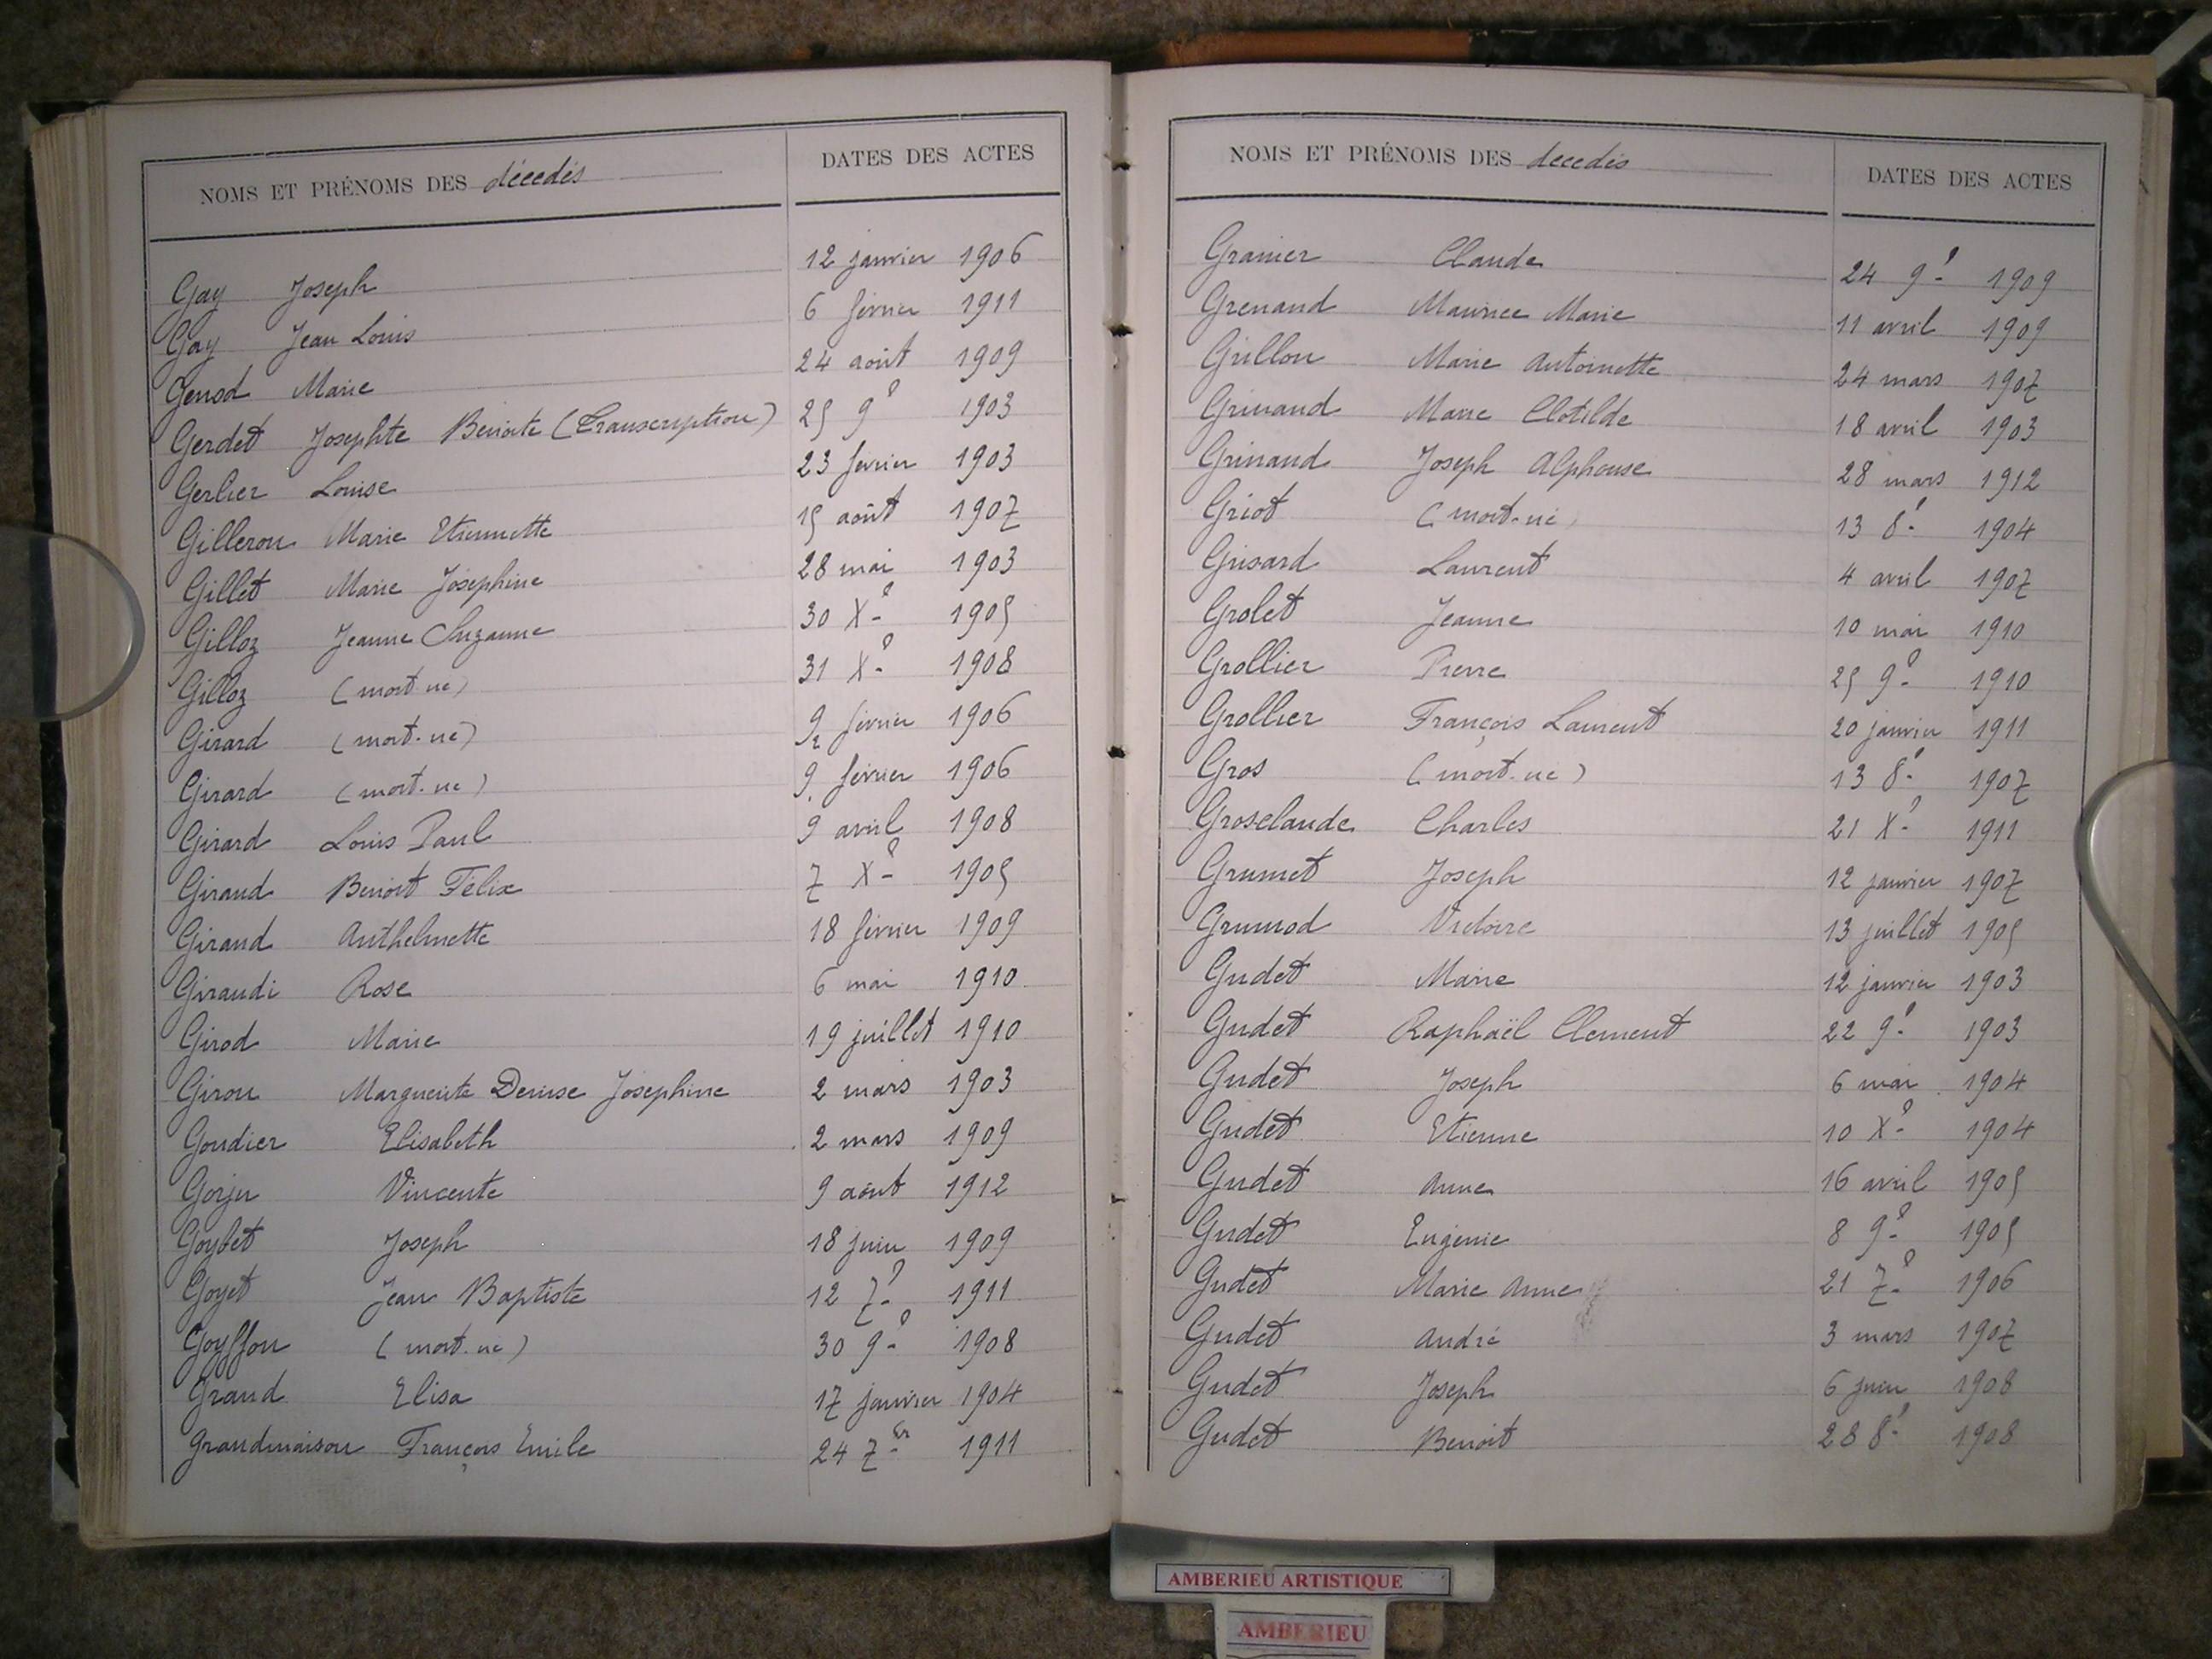 NOMS ET PRÉNOMS DES décedés DATES DES ACTES
Gay Joseph 12 janvier 1906
Gay Jean Louis 6 février 1911
Genod Marie 24 août 1909
Gerdet Josephte Benoite (Transcription) 25 9e 1903
Gerlier Louise 23 février 1903
Gilleron Marie Etiennette 15 août 1907
Gillet Marie Joséphine 28 mai 1903
Gilloz Jeanne Suzanne 30 Xe 1905
Gilloz (mort-né) 31 Xe 1908
Girard (mort-né) 9 février 1906
Girard (mort-né) 9 février 1906
Girard Louis Paul 9 avril 1908
Giraud Benoit Félix 7 Xe 1905
Giraud Anthelmette 18 février 1909
Giraudi Rose 6 mai 1910
Girod Marie 19 juillet 1910
Giron Marguerite Denise Joséphine 2 mars 1903
Goudier Elisabeth 2 mars 1909
Gorju Vincente 9 août 1912
Goybet Joseph 18 juin 1909
Goyet Jean Baptiste 12 7e 1911
Goyffon (mort-né) 30 9e 1908
Grand Elisa 17 janvier 1904
Grandmaison François Emile 24 7bre 1911
NOMS ET PRÉNOMS DES décedés DATES DES ACTES
Granier Claude 24 9e 1909
Grenand Maurice Marie 11 avril 1909
Grillon Marie Antoinette 24 mars 1907
Grinand Marie Clotilde 18 avril 1903
Grinand Joseph Alphonse 28 mars 1912
Griot (mort-né) 13 8e 1904
Grisard Laurent 4 avril 1907
Grolet Jeanne 10 mai 1910
Grollier Pierre 25 9e 1910
Grollier François Laurent 20 janvier 1911
Gros (mort-né) 13 8e 1907
Grosclaude Charles 21 Xe 1911
Grumet Joseph 12 janvier 1907
Grumod Victoire 13 juillet 1905
Gudet Marie 12 janvier 1903
Gudet Raphaël Clement 22 9e 1903
Gudet Joseph 6 mai 1904
Gudet Etienne 10 Xe 1904
Gudet Anne 16 avril 1905
Gudet Eugénie 8 9e 1905
Gudet Marie Anne 21 7e 1906
Gudet André 3 mars 1907
Gudet Joseph 6 juin 1908
Gudet Benoit 28 8e 1908
AMBERIEU ARTISTIQUE
AMBERIEU